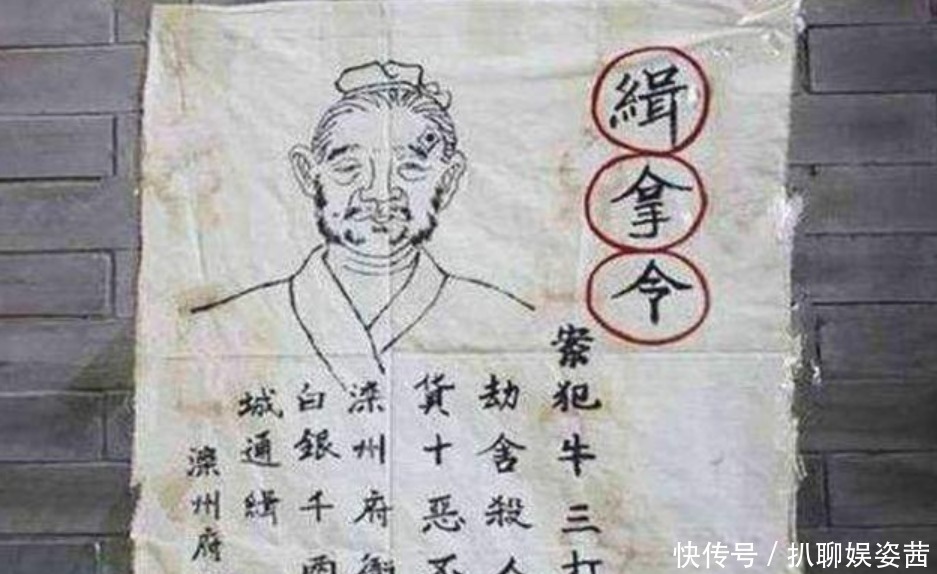 緝拿令
案犯牛三打
劫舍殺人
貨十惡不
灤州府衙
白銀千兩
城通緝
灤州府
快传号 / 扒聊娱姿茜